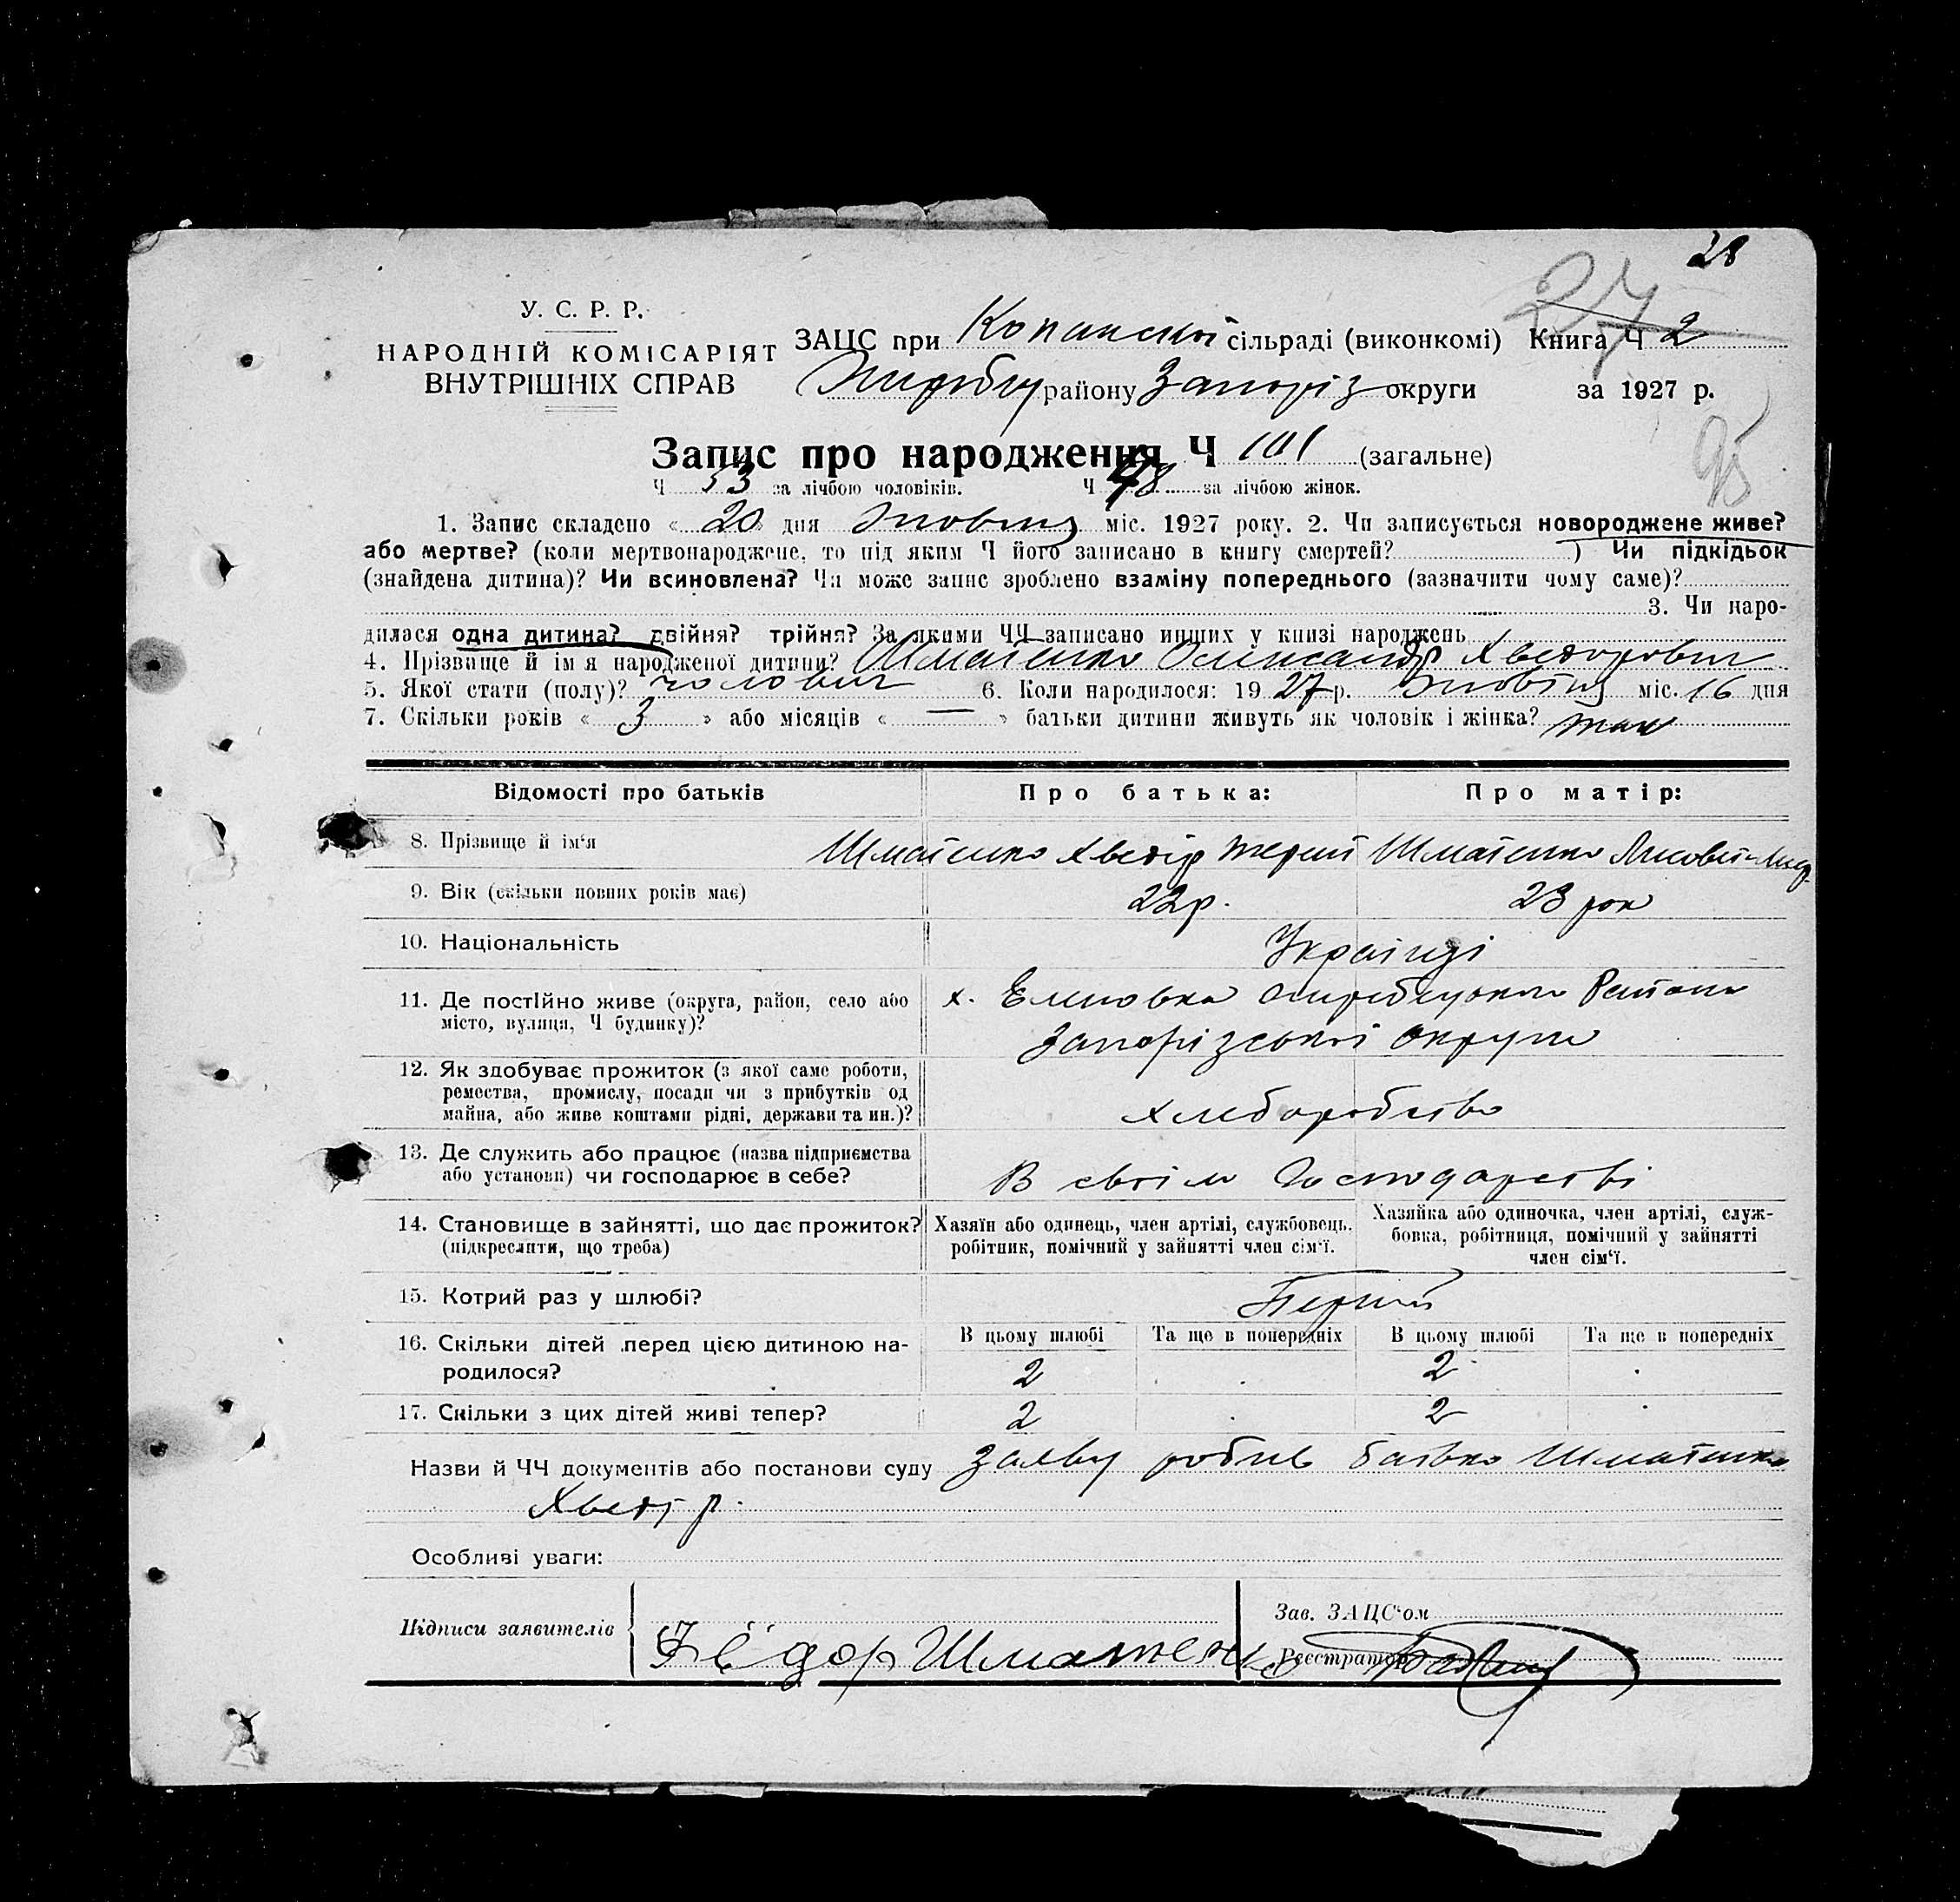 28
27
У. С. Р. Р.
НАРОДНІЙ КОМІСАРІЯТ
ВНУТРІШНІХ СПРАВ
ЗАЦС при Копанській сільраді (виконкомі) Книга Ч 2
району Запоріз округи за 1927 р.
95
Запис про народження Ч 101 (загальне)
Ч 53 за лічбою чоловіків. Ч 48 за лічбою жінок.
1. Запис складено « 20 » дня Жовтня міс. 1927 року. 2. Чи записується новороджене живе?
або мертве? (коли мертвонароджене, то під яким Ч його записано в книгу смертей? ) Чи підкідьок
(знайдена дитина)? Чи всиновлена? Чи може запис зроблено взаміну попереднього (зазначити чому саме)?
3. Чи наро-
дилася одна дитина? двійня? трійня? За якими ЧЧ записано инших у книзі народжень
4. Прізвище й ім'я народженої дитини? Шматенко Олександр Хведорович
5. Якої стати (полу)? чоловіч 6. Коли народилося: 1927 р. Жовтня міс. 16 дня
7. Скільки років « 3 » або місяців « — » батьки дитини живуть як чоловік і жінка? так
Відомості про батьків Про батька: Про матір:
8. Прізвище й ім'я Шматенко Хведір Шматенко
9. Вік (скільки повних років має) 22 р. 23 рок
10. Національність Українці
11. Де постійно живе (округа, район, село або х. Района
місто, вулиця, Ч будинку)? Запорізської округи
12. Як здобуває прожиток (з якої саме роботи,
ремества, промислу, посади чи з прибутків од
майна, або живе коштами рідні, держави та ин.)? хлеборобство
13. Де служить або працює (назва підприємства
або установи) чи господарює в себе? В своїм Господарстві
14. Становище в зайнятті, що дає прожиток? Хазяїн або одинець, член артілі, службовець, Хазяйка або одиночка, член артілі, служ-
(підкреслити, що треба) робітник, помічний у зайнятті член сім'ї. бовка, робітниця, помічний у зайнятті
член сім'ї.
15. Котрий раз у шлюбі? Перший
16. Скільки дітей перед цією дитиною на- В цьому шлюбі Та ще в попередніх В цьому шлюбі Та ще в попередніх
родилося? 2 2
17. Скільки з цих дітей живі тепер? 2 2
Назви й ЧЧ документів або постанови суду заяву робив батько Шматенко
Хведір.
Особливі уваги:
Зав. ЗАЦС'ом
Підписи заявителів Фёдор Шматенко Реєстратор